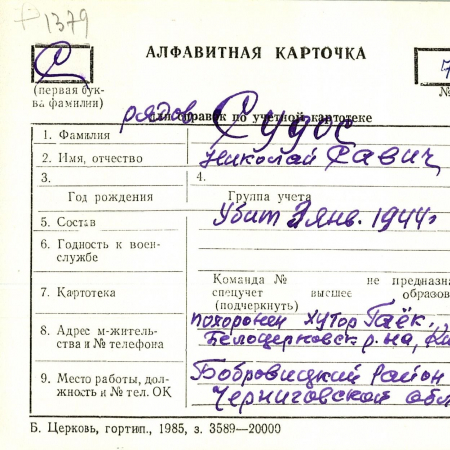 Р 1379
АЛФАВИТНАЯ КАРТОЧКА
С
(первая бук-
ва фамилии)
№
рядов.
для справок по учетной картотеке
1. Фамилия Судос
2. Имя, отчество Николай Савич
3. 4.
Год рождения Группа учета
5. Состав Убит 3 янв. 1944г
6. Годность к воен-
службе
Команда № не предназна
7. Картотека спецучет высшее образов
(подчеркнуть)
8. Адрес м-житель- похоронен хутор Гаёк.,
ства и № телефона Белоцерковск р-на, Ки
9. Место работы, дол- Бобровицкий район
жность и № тел. ОК Черниговской обл
Б. Церковь, гортип., 1985, з. 3589—20000